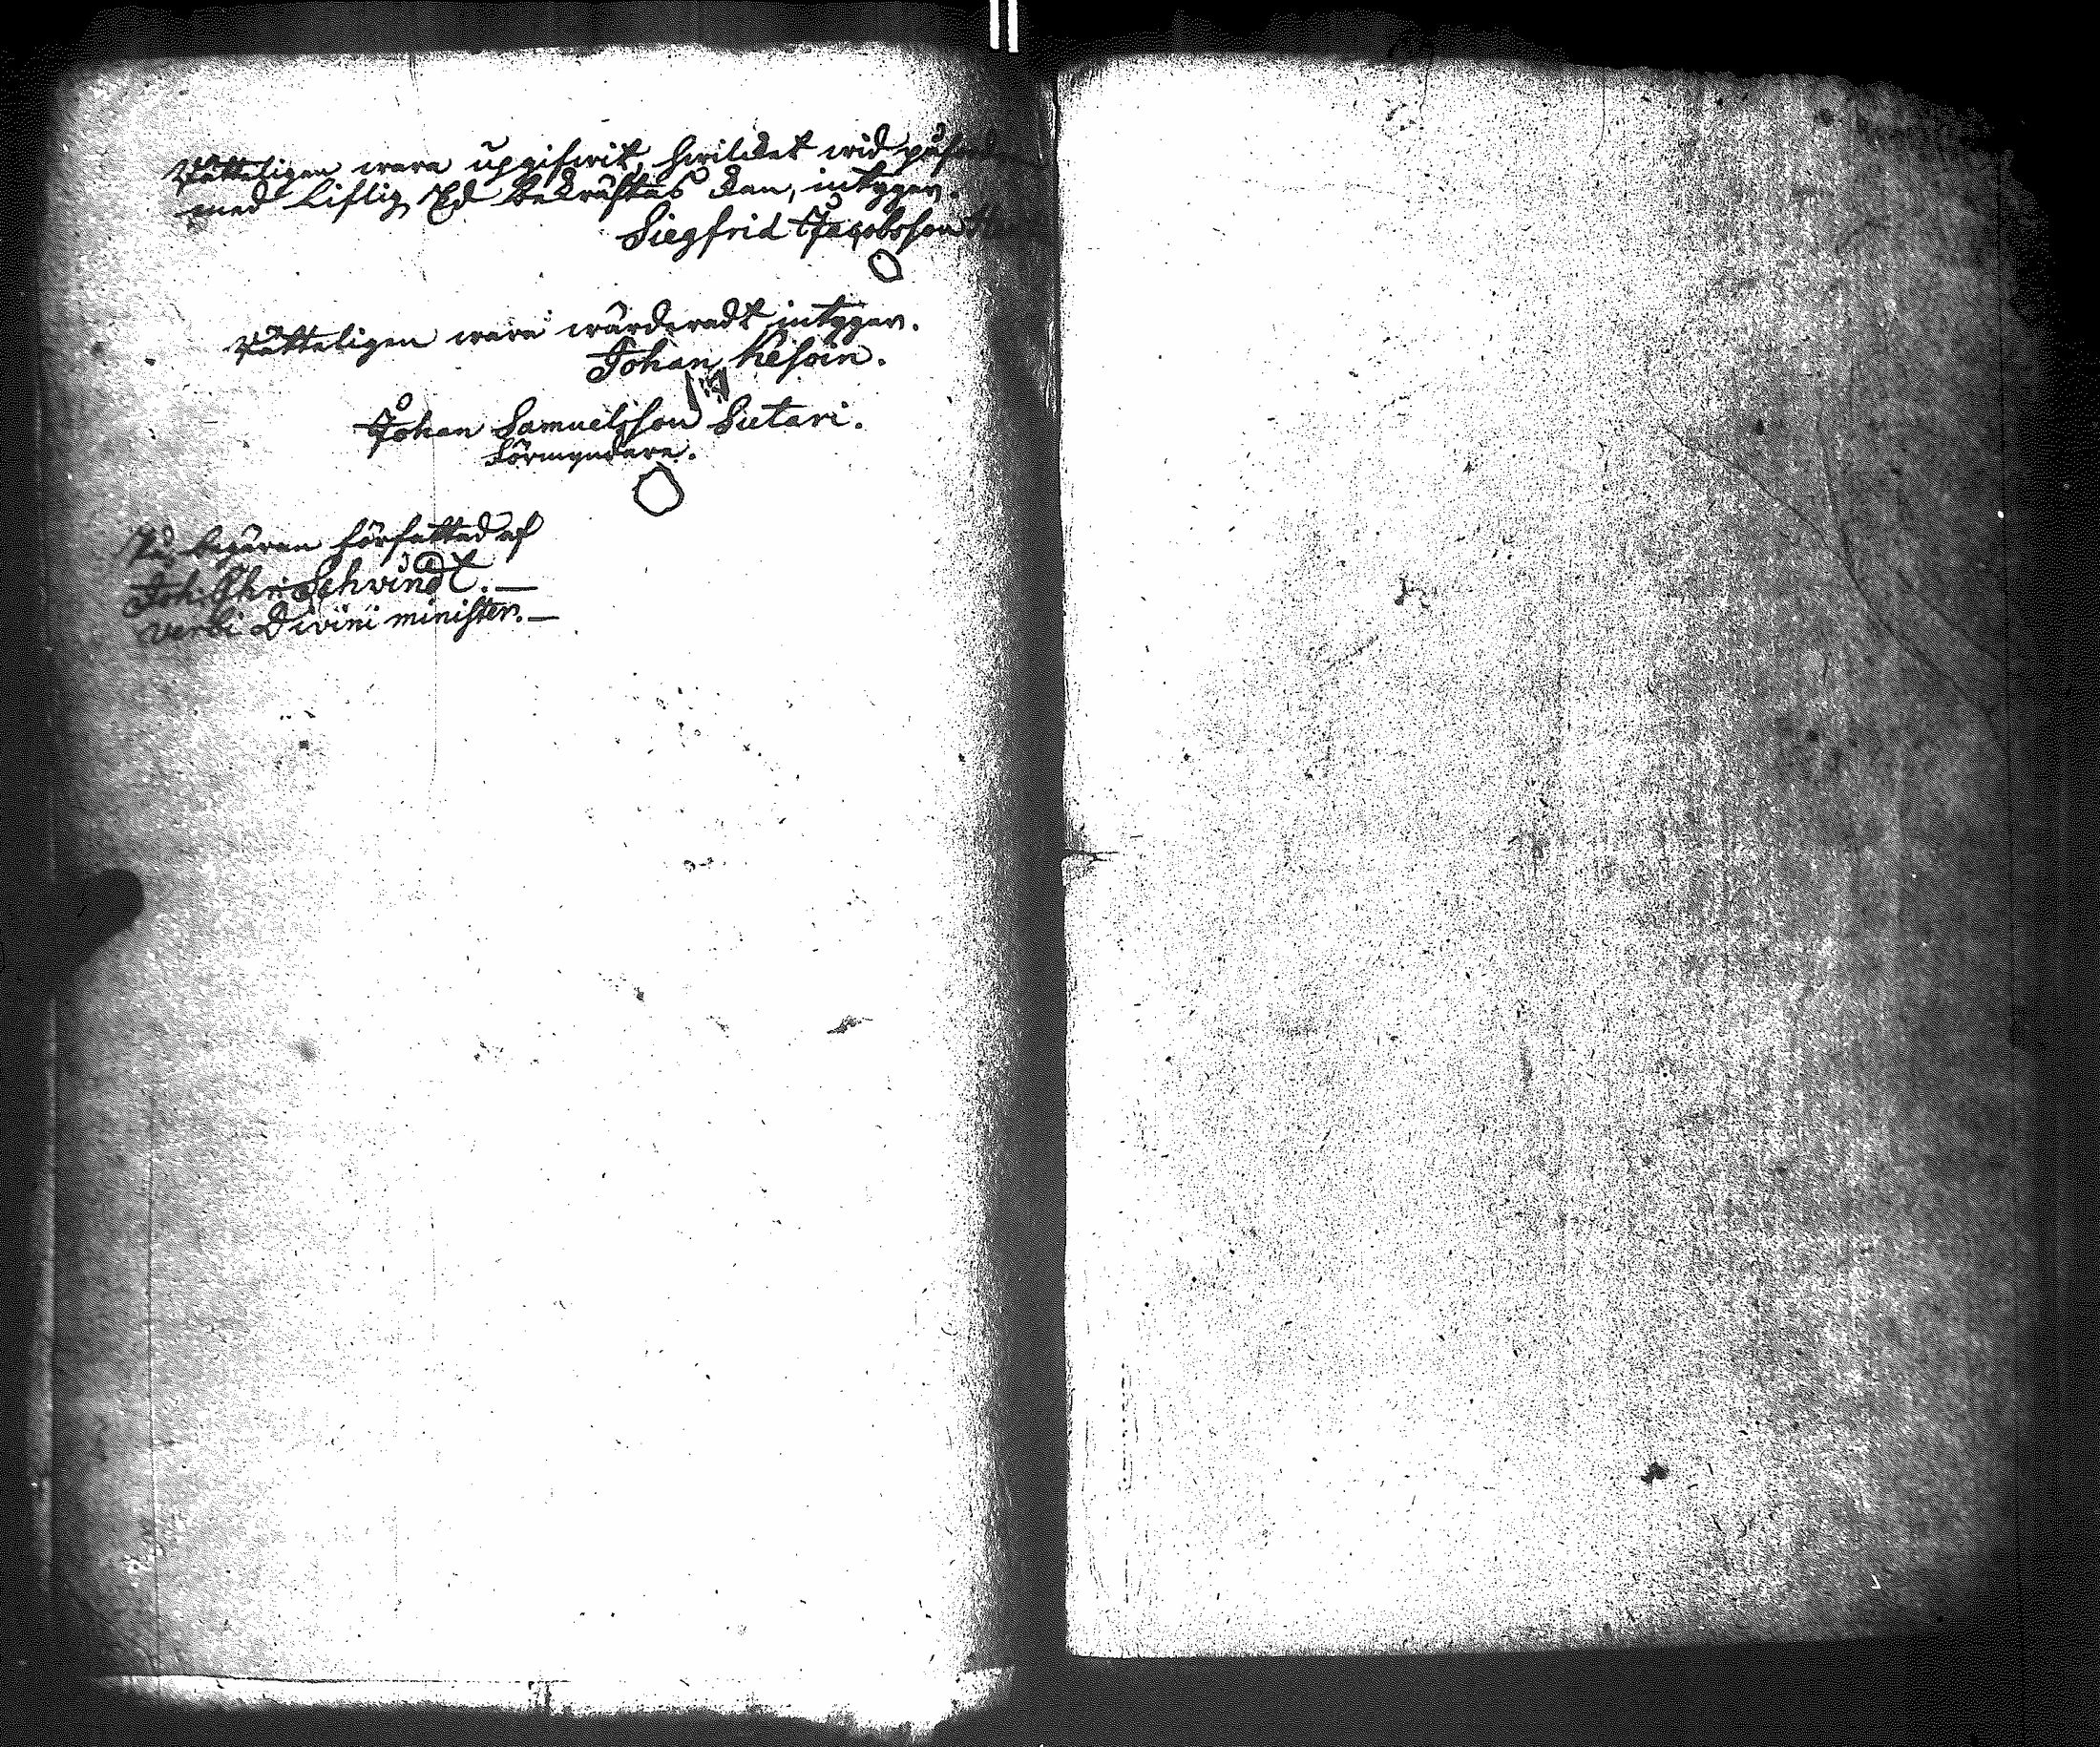 Rätteligen wara upgifwit, hwilcket wid påfordran
med liflig Ed bekräftas kan, intygar.
Siegfrid Jacobsson
Rätteligen wara wärderadt intygar.
Johan Kesoin.
Johan Samuelsson Sutari.
förmyndare.
På begäran författad af
Joh: Chr: Schvindt.
Verbi Divini minister.